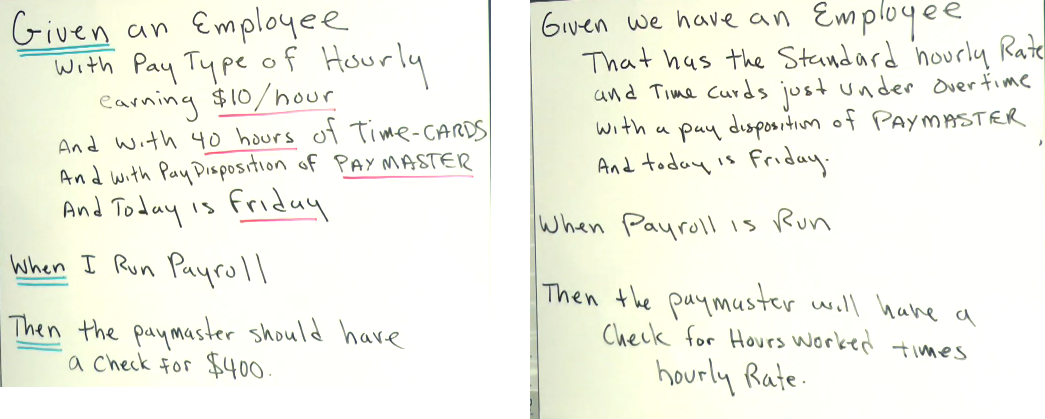 Given an Employee
With Pay Type of Hourly
earning $10/hour
And With 40 hours of Time-CARDS
And with Pay Disposition of PAYMASTER
And Today is Friday
When I Run Payroll
Then the paymaster should have
a Check for $400.
Given we have an Employee
That has the Standard hourly Rate
and Time Cards just under overtime
With a pay disposition of PAYMASTER
And today is Friday.
When Payroll is Run
Then the paymaster will have a
Check for Hours Worked times
hourly Rate.